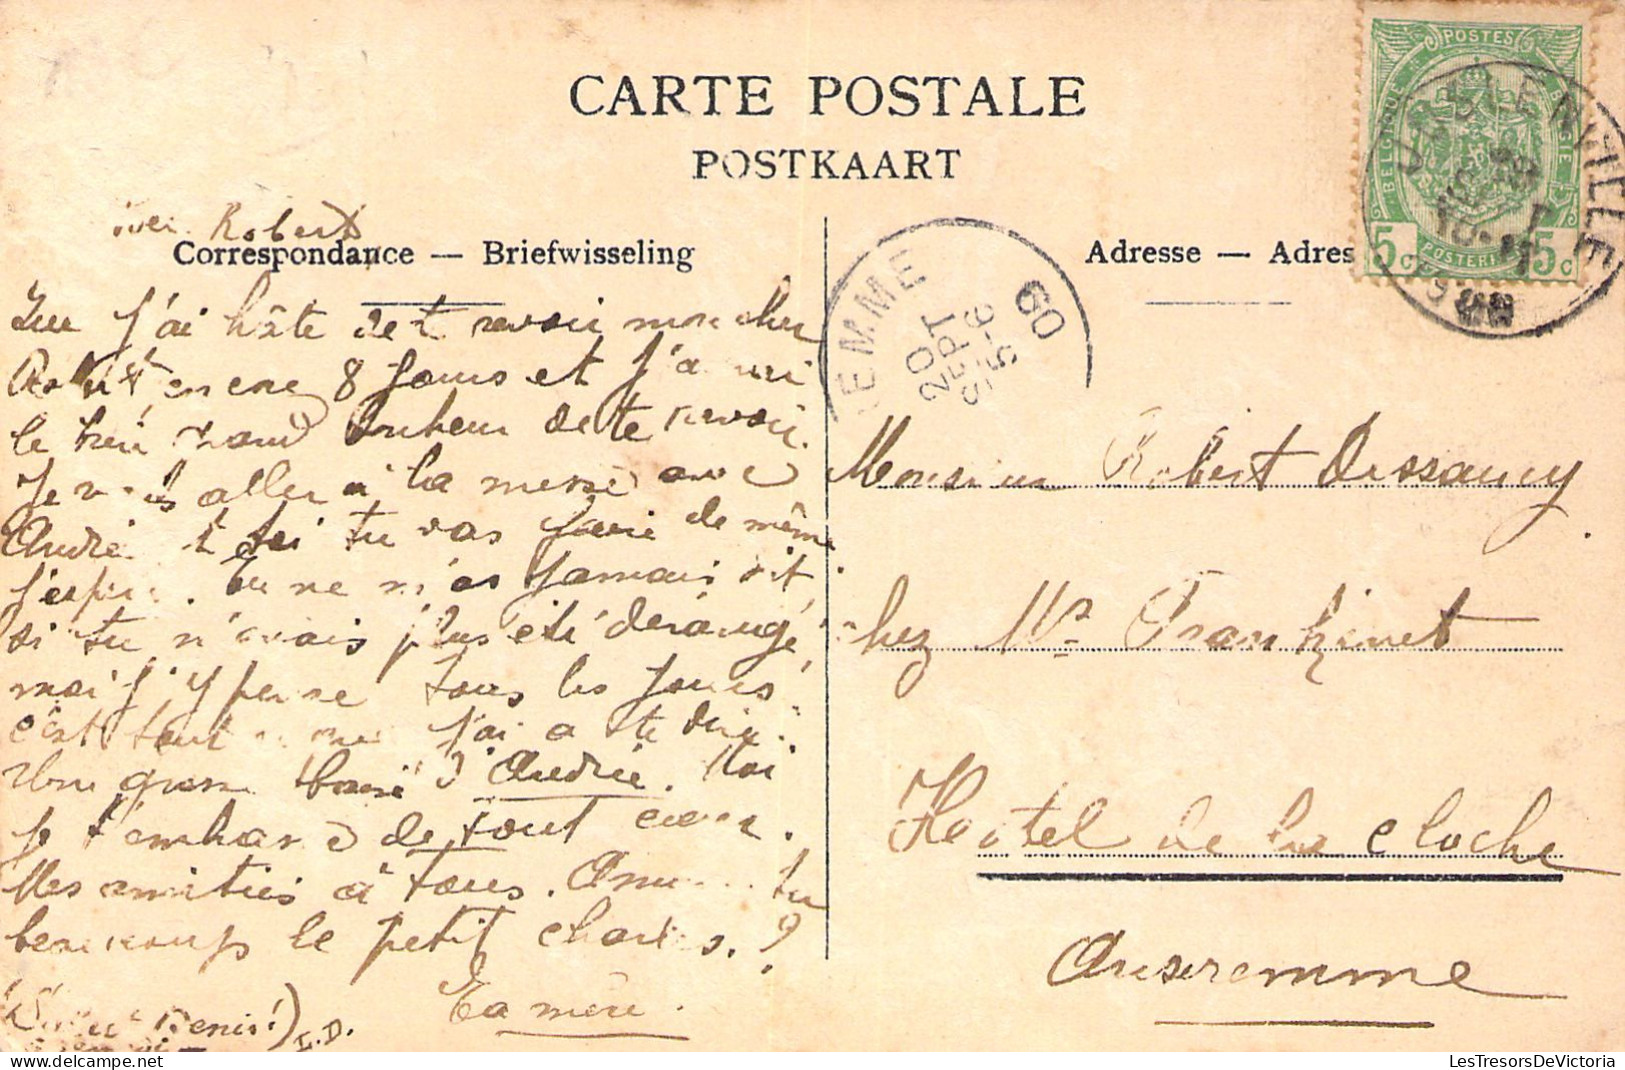 CARTE POSTALE
POSTKAART
Robert
Correspondance — Briefwisseling
Adresse — Adres
POSTES
BELGIQUE
5c 5c
EMME
20
SEPT
5-6
09
Que j'ai hâte de t revoir mon cher
Robert encore 8 jours et j'aurai
le bien grand bonheur de te revoir.
Je vais aller à la messe avec
André & toi tu vas faire de même
j'espère. Tu ne m'as jamais dit
si tu n'avais plus été dérangé,
moi j'y pense tous les jours
c'est tout ce que j'ai a te dire.
Une grosse baise d'André. Moi
je t'embrasse de tout cœur.
Mes amitiés à tous. tu
beaucoup le petit Charles.?
Ta mère.
Monsieur Robert Dessancy
chez Mr Frankinet
Hotel de la cloche
Anseremme
LesTresorsDeVictoria